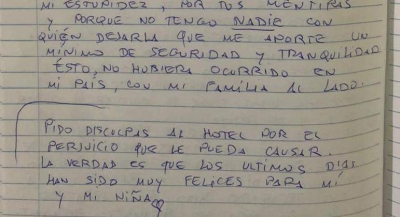 MI ESTUPIDEZ, POR TUS MENTIRAS
Y PORQUE NO TENGO NADIE CON
QUIÉN DEJARLA QUE ME APORTE UN
MÍNIMO DE SEGURIDAD Y TRANQUILIDAD
ÉSTO, NO HUBIERA OCURRIDO EN
MI PAÍS, CON MI FAMILIA AL LADO.
PIDO DISCULPAS AL HOTEL POR EL
PERJUICIO QUE LE PUEDA CAUSAR.
LA VERDAD ES QUE LOS ULTIMOS DIAS
HAN SIDO MUY FELICES PARA MÍ
Y MI NIÑA